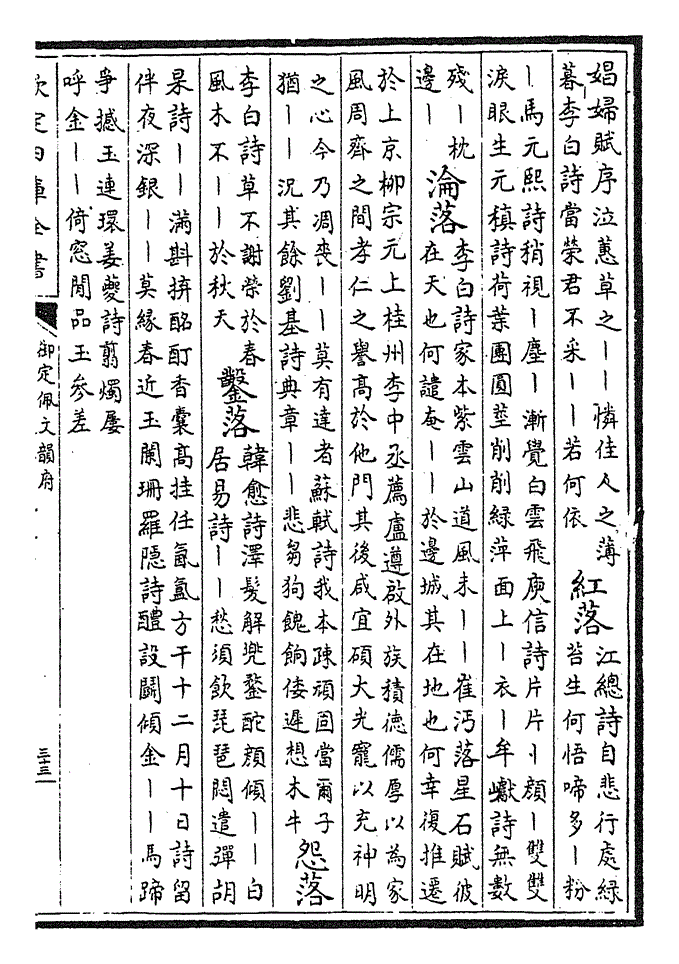 娼婦賦序泣蕙草之丨丨憐佳人之薄
暮李白詩當榮君不采丨丨若何依
紅落
江總詩自悲行處綠
苔生何悟啼多丨粉
丨馬元熙詩稍視丨塵丨漸覺白雲飛庾信詩片片丨顏丨雙雙
淚眼生元稹詩荷葉團圓莖削削綠萍面上丨衣丨牟巘詩無數
殘丨枕
邊丨
淪落
李白詩家本紫雲山道風未丨丨崔沔落星石賦彼
在天也何譴奄丨丨於邊城其在地也何幸復推遷
於上京柳宗元上桂州李中丞薦盧遵啟外族積德儒厚以為家
風周齊之間孝仁之譽髙於他門其後咸宜碩大光寵以充神明
之心今乃凋喪丨丨莫有達者蘇軾詩我本疎頑固當爾子
猶丨丨況其餘劉基詩典章丨丨悲芻狗餽餉倭遲想木牛
怨落
李白詩草不謝榮於春
風木不丨丨於秋天
鑿落
韓愈詩澤髮解兜鍪酡顏傾丨丨白
居易詩丨丨愁須飲琵琶悶遣彈胡
杲詩丨丨滿斟拚酩酊香囊髙挂任氤氳方干十二月十日詩留
伴夜深銀丨丨莫緣春近玉闌珊羅隱詩醴設鬬傾金丨丨馬蹄
爭撼玉連環姜夔詩翦燭屢
呼金丨丨倚窓閒品玉參差
欽定四庫全書
御定佩文韻府
三十三